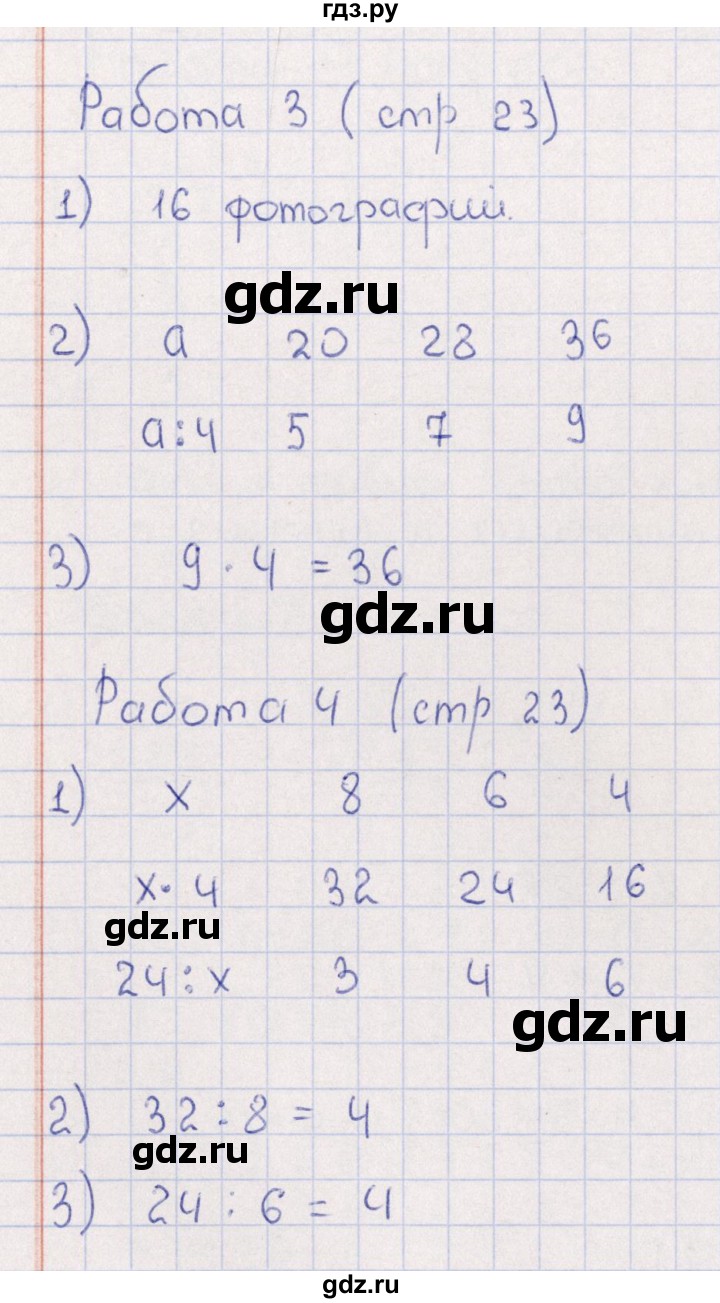 гдз.ру
Работа 3 (стр 23)
1) 16 фотографий.
gdz.ru
2) а 20 28 36
а:4 5 7 9
3) 9 · 4 = 36
gdz.ru
Работа 4 (стр 23)
1) х 8 6 4
х· 4 32 24 16
gdz.ru
24:х 3 4 6
gdz.ru
2) 32:8 = 4
gdz.ru
3) 24 : 6 = 4
gdz.ru